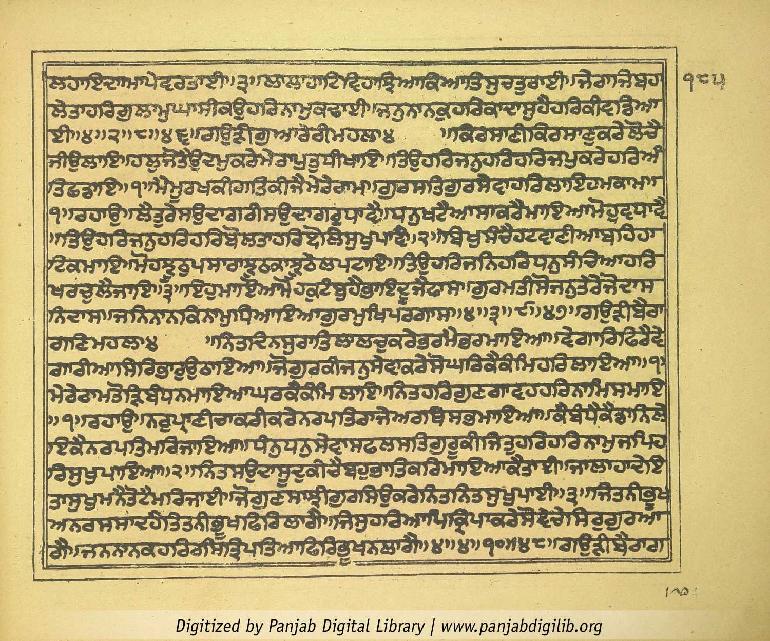 ਲਹਾਇਦਾਆਪੇਵਰਤਾਈ॥੩॥ਲਾਲਾਹਾਟਿਵਿਹਾਝਿਆਕਿਆਤਿਸੁਚਤੁਰਾਈ॥ਜੇਰਾਜੇਬਹਾ ੧੮੫
ਲੇਤਾਹਰਿਗੁਲਾਮੁਘਾਸੀਕਉਹਰਿਨਾਮੁਕਢਾਈ॥ਜਨੁਨਾਨਕੁਹਰਿਕਾਦਾਸੁਹੈਹਰਿਕੀਵਡਿਆ
ਈ॥੪॥੨॥੮॥੪੬॥ਗਉੜੀਗੁਆਰੇਰੀਮਹਲਾ੪ ॥ਕਿਰਸਾਣੀਕਿਰਸਾਣੁਕਰੇਲੋਚੈ
ਜੀਉਲਾਇ॥ਹਲੁਜੋਤੈਉਦਮੁਕਰੇਮੇਰਾਪੁਤੁਧੀਖਾਇ॥ਤਿਉਹਰਿਜਨੁਹਰਿਹਰਿਜਪੁਕਰੇਹਰਿਅੰ
ਤਿਛਡਾਇ॥੧॥ਮੈਮੂਰਖਕੀਗਤਿਕੀਜੈਮੇਰੇਰਾਮ॥ਗੁਰਸਤਿਗੁਰਸੇਵਾਹਰਿਲਾਇਹਮਕਾਮ॥
੧॥ਰਹਾਉ॥ਲੈਤੁਰੇਸਉਦਾਗਰੀਸਉਦਾਗਰੁਧਾਵੈ॥ਧਨੁਖਟੈਆਸਾਕਰੈਮਾਇਆਮੋਹੁਵਧਾਵੈ
॥ਤਿਉਹਰਿਜਨੁਹਰਿਹਰਿਬੋਲਤਾਹਰਿਬੋਲਿਸੁਖੁਪਾਵੈ॥੨॥ਬਿਖੁਸੰਚੈਹਟਵਾਣੀਆਬਹਿਹਾ
ਟਿਕਮਾਇ॥ਮੋਹਝੂਠੁਪਸਾਰਾਝੂਠਕਾਝੂਠੇਲਪਟਾਇ॥ਤਿਉਹਰਿਜਨਿਹਰਿਧਨੁਸੰਚਿਆਹਰਿ
ਖਰਚੁਲੈਜਾਇ॥੩॥ਇਹੁਮਾਇਆਮੋਹਕੁਟੰਬੁਹੈਭਾਇਦੂਜੈਫਾਸ॥ਗੁਰਮਤੀਸੋਜਨੁਤਰੈਜੋਦਾਸ
ਨਿਦਾਸ॥ਜਨਿਨਾਨਕਿਨਾਮੁਧਿਆਇਆਗੁਰਮੁਖਿਪਰਗਾਸ॥੪॥੩॥੯॥੪੭॥ਗਉੜੀਬੈਰਾ
ਗਣਿਮਹਲਾ੪ ॥ਨਿਤਦਿਨਸੁਰਾਤਿਲਾਲਚੁਕਰੇਭਰਮੈਭਰਮਾਇਆ॥ਵੇਗਾਰਿਫਿਰੈਵੇ
ਗਾਰੀਆਸਿਰਿਭਾਰੁਉਠਾਇਆ॥ਜੋਗੁਰਕੀਜਨੁਸੇਵਕਰੇਸੋਘਰਿਕੈਕੰਮਿਹਰਿਲਾਇਆ॥੧॥
ਮੇਰੇਰਾਮਤੋੜਿਬੰਧਨਮਾਇਆਘਰਕੈਕੰਮਿਲਾਇ॥ਨਿਤਹਰਿਗੁਣਗਾਵਹਹਰਿਨਾਮਿਸਮਾਇ
॥੧॥ਰਹਾਉ॥ਨਰੁਪ੍ਰਾਣੀਚਾਕਰੀਕਰੇਨਰਪਤਿਰਾਜੇਅਰਥਿਸਭਮਾਇਆ॥ਕੈਬੰਧੈਕੈਡਾਨਿਲੇ
ਇਕੈਨਰਪਤਿਮਰਿਜਾਇਆ॥ਧੰਨੁਧਨੁਸੇਵਾਸਫਲਸਤਿਗੁਰੂਕੀਜਿਤੁਹਰਿਹਰਿਨਾਮੁਜਪਿਹ
ਰਿਸੁਖੁਪਾਇਆ॥੨॥ਨਿਤਸਉਦਾਸੂਦੁਕੀਚੈਬਹੁਭਾਤਿਕਰਿਮਾਇਆਕੈਤਾਈ॥ਜਾਲਾਹਾਦੇਇ
ਤਾਸੁਖੁਮਨੈਤੋਟੈਮਰਿਜਾਈ॥ਜੋਗੁਣਸਾਝੀਗੁਰਸਿਉਕਰੇਨਿਤਨਿਤਸੁਖੁਪਾਈ॥੩॥ਜਿਤਨੀਭੂਖ
ਅਨਰਸਸਾਦਹੈਤਿਤਨੀਭੂਖਫਿਰਿਲਾਗੈ॥ਜਿਸੁਹਰਿਆਪਿਕ੍ਰਿਪਾਕਰੇਸੋਵੇਚੇਸਿਰੁਗੁਰਆ
ਗੈ॥ਜਨਨਾਨਕਹਰਿਰਸਿਤ੍ਰਿਪਤਿਆਫਿਰਿਭੂਖਨਲਾਗੈ॥੪॥੪॥੧੦॥੪੮॥ਗਉੜੀਬੈਰਾਗ
Digitized by Panjab Digital Library | www.panjabdigilib.org